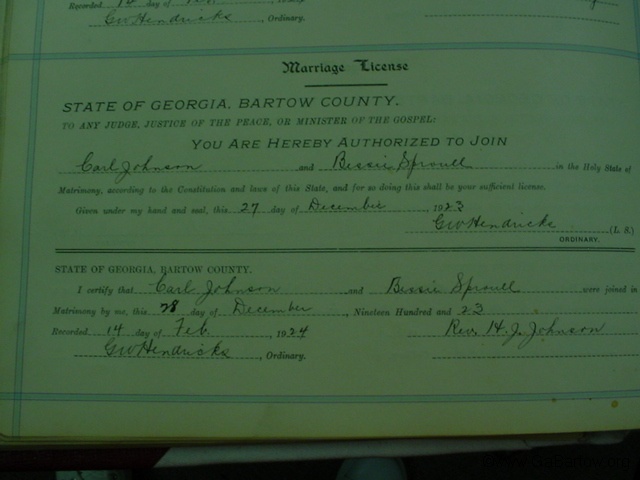 Recorded 14 day of
GW Hendricks, Ordinary.
Marriage License
STATE OF GEORGIA, BARTOW COUNTY.
TO ANY JUDGE, JUSTICE OF THE PEACE, OR MINISTER OF THE GOSPEL:
YOU ARE HEREBY AUTHORIZED TO JOIN
Carl Johnson and Bessie Sproull in the Holy State of
Matrimony, according to the Constitution and laws of this State, and for so doing this shall be your sufficient license.
Given under my hand and seal, this 27 day of December 1923
GW Hendricks (L. S.)
ORDINARY.
STATE OF GEORGIA, BARTOW COUNTY.
I certify that Carl Johnson and Bessie Sproull were joined in
Matrimony by me, this 28 day of December, Nineteen Hundred and 23
Recorded 14 day of Feb. 1924 Rev. H. J. Johnson
GW Hendricks, Ordinary.